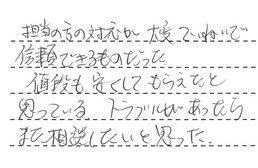 担当の方の対応が大変ていねいで
信頼できるものだった
値段も安くしてもらえたと
思っている。トラブルがあったら
また相談したいと思った。